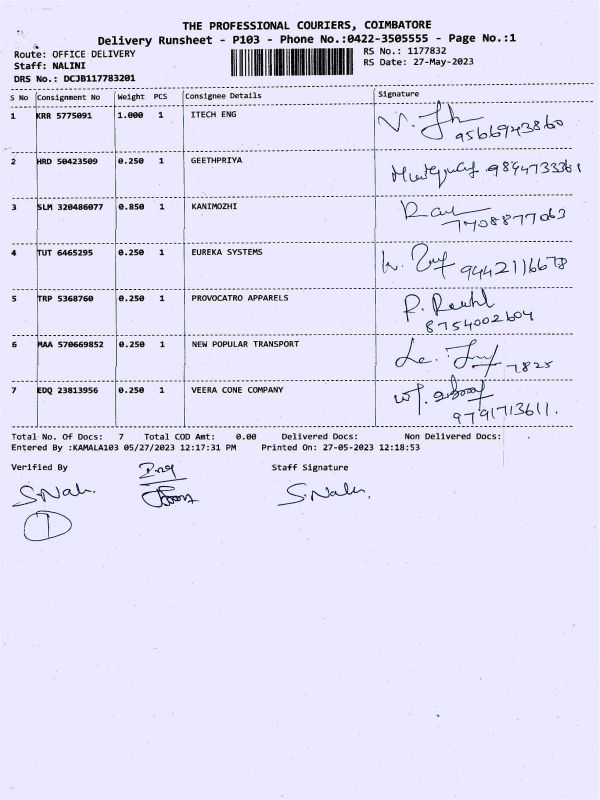 THE PROFESSIONAL COURIERS, COIMBATORE
Delivery Runsheet - P103 - Phone No.:0422-3505555 - Page No.:1
Route: OFFICE DELIVERY RS No.: 1177832
Staff: NALINI RS Date: 27-May-2023
DRS No.: DCJB117783201
S No Consignment No Weight PCS Consignee Details Signature
1 KRR 5775091 1.000 1 ITECH ENG
9566943860
2 HRD 50423509 0.250 1 GEETHPRIYA
9894733361
3 SLM 320486077 0.850 1 KANIMOZHI
7708877063
4 TUT 6465295 0.250 1 EUREKA SYSTEMS
9442116678
5 TRP 5368760 0.250 1 PROVOCATRO APPARELS
8754002604
6 MAA 570669852 0.250 1 NEW POPULAR TRANSPORT
7825
7 EDQ 23813956 0.250 1 VEERA CONE COMPANY
9791713611.
Total No. Of Docs: 7 Total COD Amt: 0.00 Delivered Docs: Non Delivered Docs:
Entered By :KAMALA103 05/27/2023 12:17:31 PM Printed On: 27-05-2023 12:18:53
Verified By Staff Signature